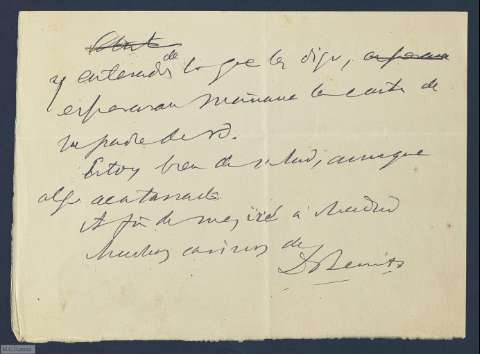 y enterados de lo que les digo,
esperaran mañana la carta de
su padre de vd.
Estoy bien de salud, aunque
algo acatarrado
A fin de mes iré a Madrid
Muchos cariños de
D. Benito